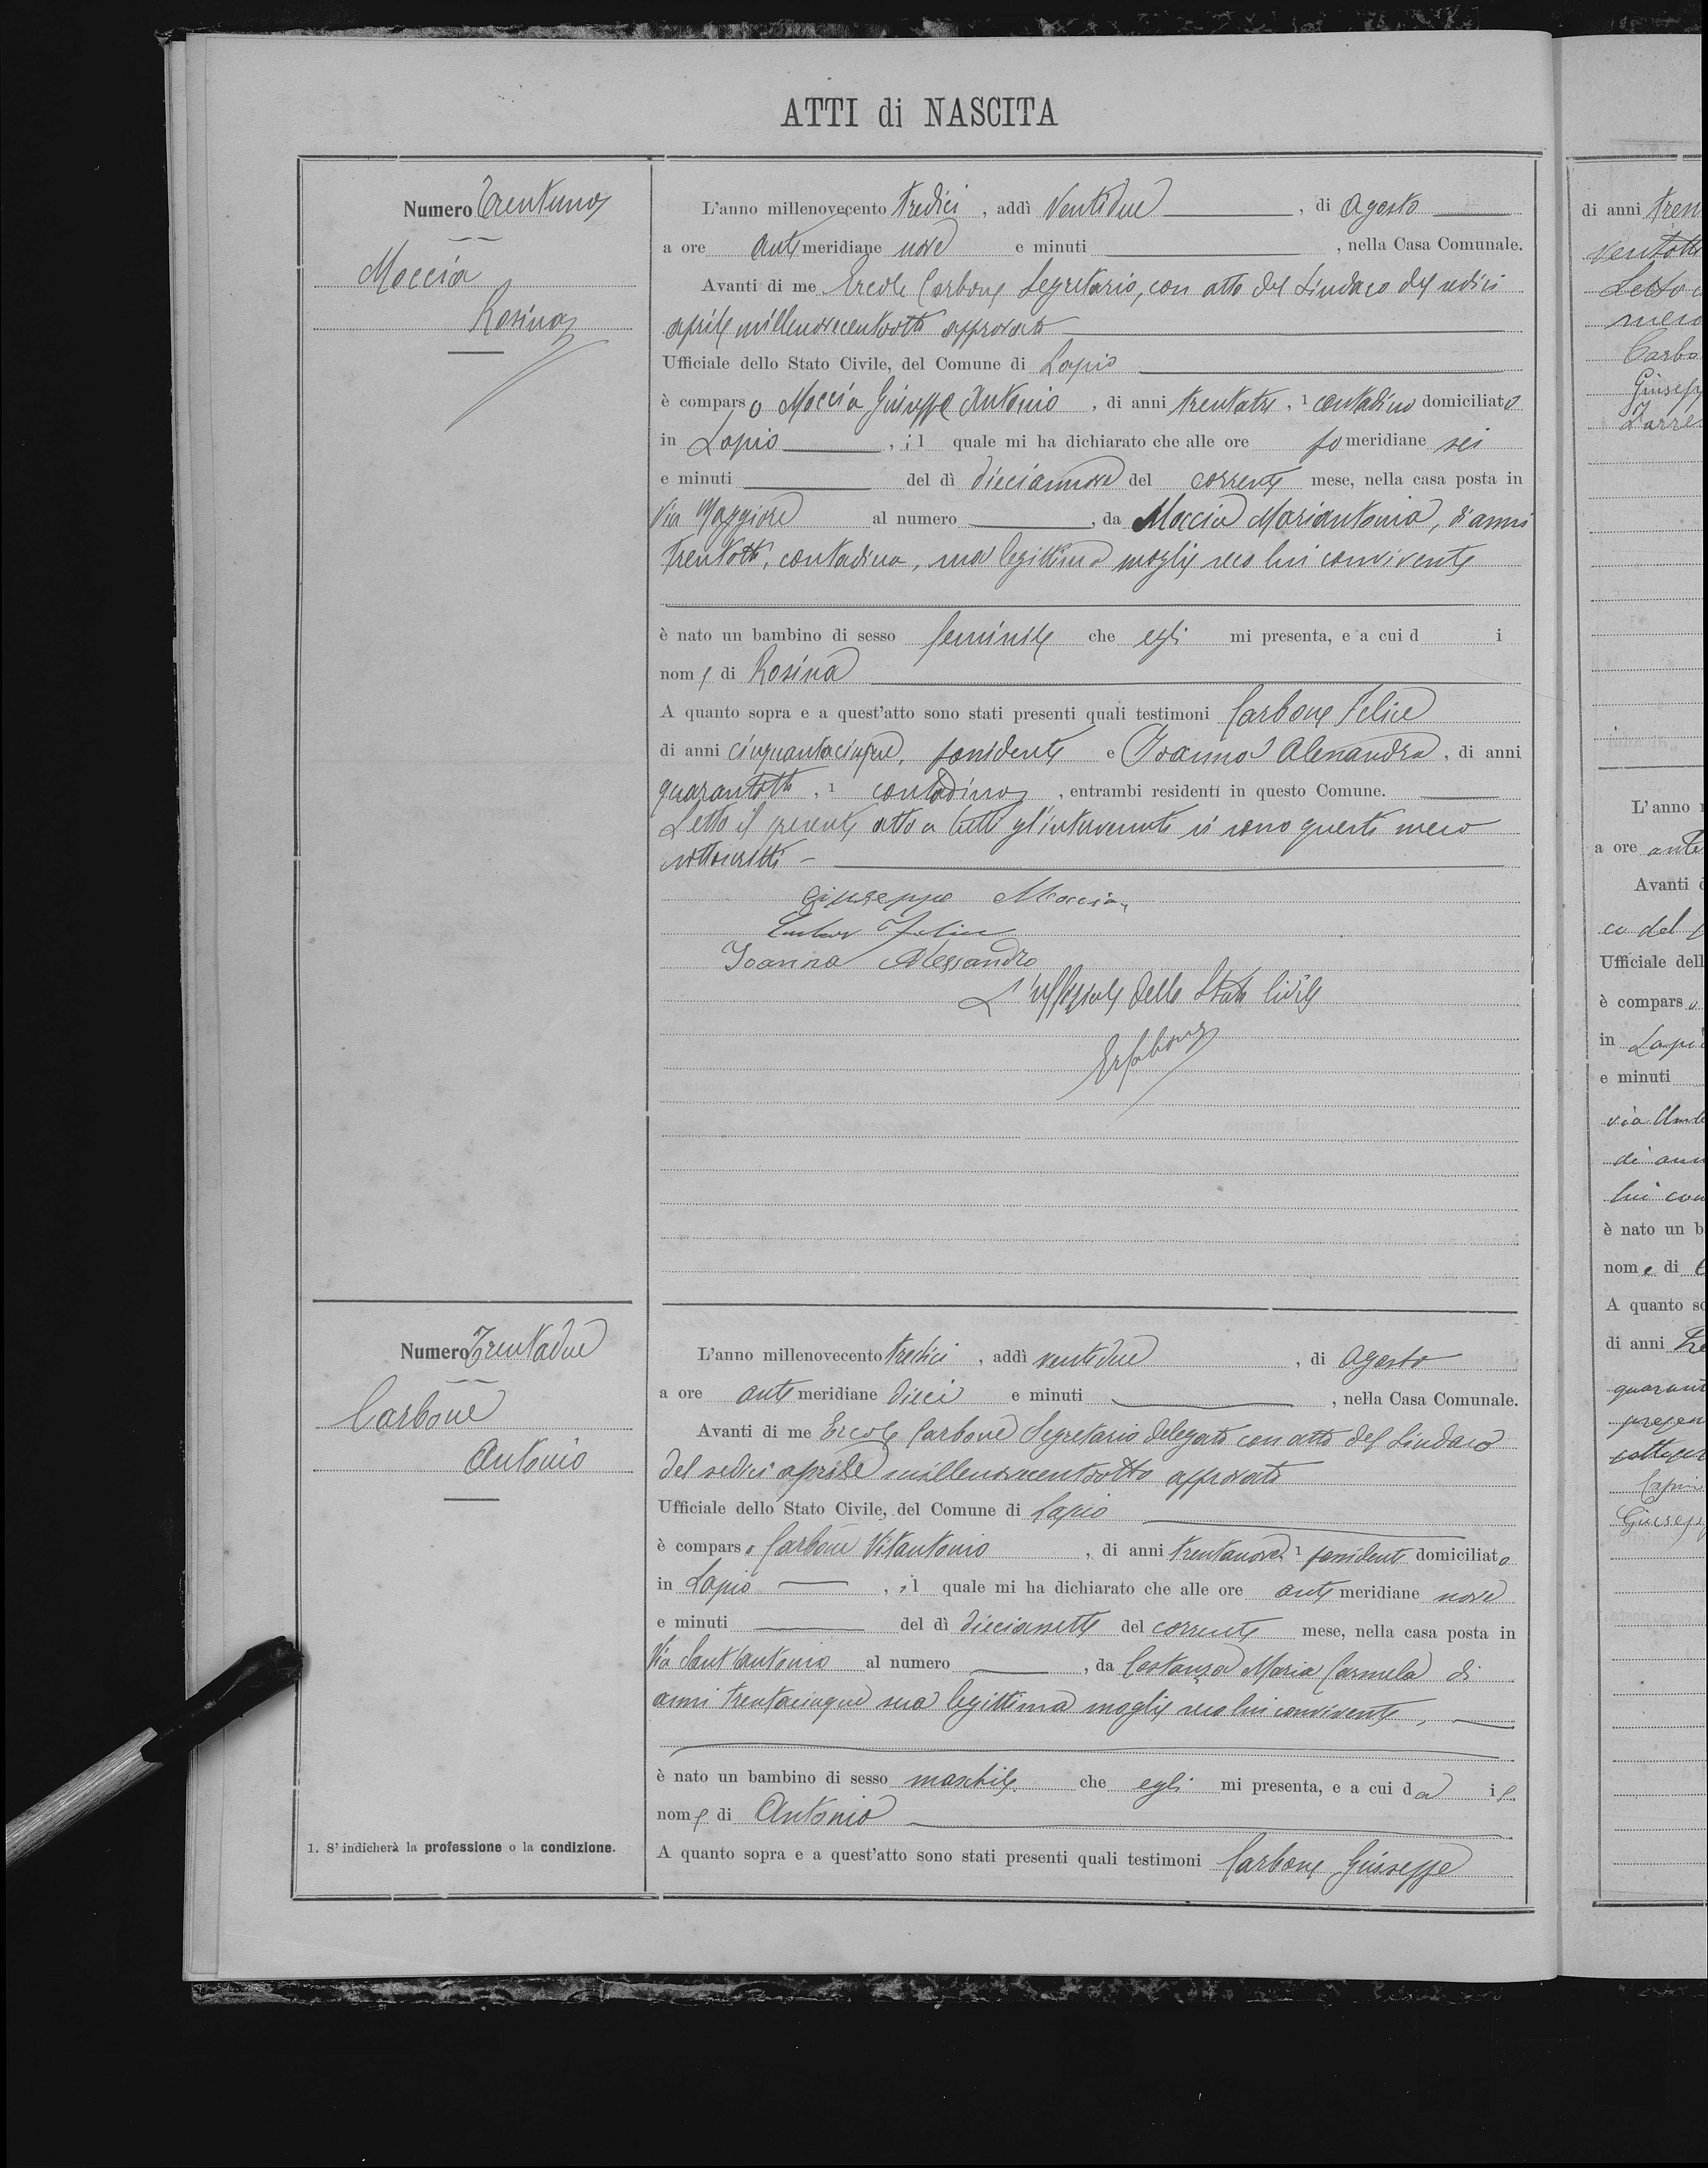 ATTI di NASCITA
Numero Trentuno
Moccia
Rosina
L'anno millenovecento tredici, addì ventidue, di Agosto
a ore antimeridiane nove e minuti, nella Casa Comunale.
Avanti di me Ercole Carbone Segretario, con atto del Sindaco del sedici
aprile millenovecentootto approvato
Ufficiale dello Stato Civile, del Comune di Lapio
è comparso Moccia Giuseppe Antonio, di anni trentatre, 1 contadino domiciliato
in Lapio, il quale mi ha dichiarato che alle ore pomeridiane sei
e minuti del dì diciannove del corrente mese, nella casa posta in
Via Maggiore al numero, da Moccia Mariantonia, d'anni
trentotto, contadina, sua legittima moglie seco lui convivente
è nato un bambino di sesso feminile che egli mi presenta, e a cui d i
nome di Rosina
A quanto sopra e a quest'atto sono stati presenti quali testimoni Carbone Felice
di anni cinquantacinque, possidente e Ioanna Alessandro, di anni
quarantotto, 1 contadino, entrambi residenti in questo Comune.
Letto il presente atto a tutti gl'intervenuti si sono questi meco
sottoscritti -
Giuseppe Moccia
Carbone Felice
Ioanna Alessandro
L'uffiziale dello Stato Civile
ErCarbone
Numero Trentadue
Carbone
Antonio
L'anno millenovecento tredici, addì ventidue, di Agosto
a ore antimeridiane dieci e minuti, nella Casa Comunale.
Avanti di me Ercole Carbone Segretario delegato con atto del Sindaco
del sedici aprile millenovecentootto approvato
Ufficiale dello Stato Civile, del Comune di Lapio
è comparso Carbone Vitantonio, di anni trentanove, 1 possidente domiciliato
in Lapio, il quale mi ha dichiarato che alle ore antimeridiane nove
e minuti del dì diciassette del corrente mese, nella casa posta in
Via Sant'Antonio al numero, da Costanza Maria Carmela di
anni trentacinque sua legittima moglie seco lui convivente,
è nato un bambino di sesso maschile che egli mi presenta, e a cui da il
nome di Antonio
A quanto sopra e a quest'atto sono stati presenti quali testimoni Carbone Giuseppe
1. S'indicherà la professione o la condizione.
di anni
L'anno
a ore
Avanti
co del
Ufficiale
è comparso
in
e minuti
via
di
lui
è nato un
nome di
A quanto
di anni